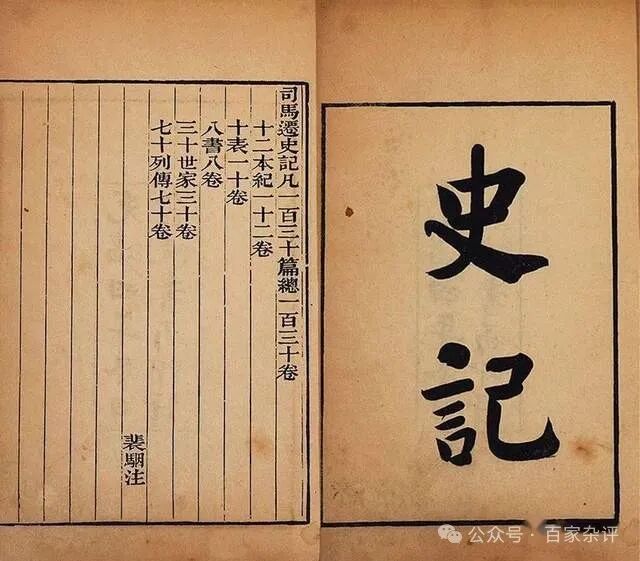 史記
司馬遷史記凡一百三十篇總一百三十卷
十二本紀一十二卷
十表一十卷
八書八卷
三十世家三十卷
七十列傳七十卷
裴駰注
公众号 · 百家杂评